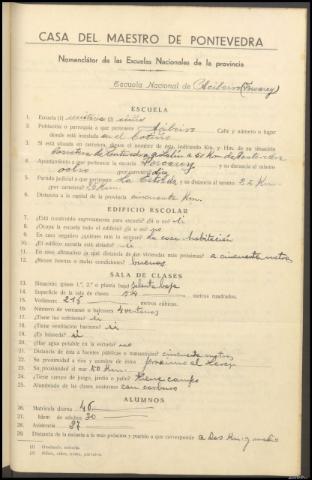 CASA DEL MAESTRO DE PONTEVEDRA
Nomenclátor de las Escuelas Nacionales de la provincia
Escuela Nacional de Acibeiro (Forcarey)
ESCUELA
1. Escuela (1) unitaria (2) niños
2. Población o parroquia a que pertenece Acibeiro Calle y número o lugar
donde está instalada en el
3. Si está situada en carretera, dense el nombre de ésta, indicando Km. y Hm. de su situación
Carretera de Pontevedra a Lalín a 50 km de Pontevedra
4. Ayuntamiento a que pertenece la escuela Forcarey y su distancia al mismo
ocho (por carretera)
5. Partido judicial a que pertenece La Estrada y su distancia al mismo 32 Km.
(por carretera) Km.
6. Distancia a la capital de la provincia cincuenta Km.
EDIFICIO ESCOLAR
7. ¿Está construído expresamente para escuela? Sí o no? si
8. ¿Ocupa la escuela todo el edificio? Sí o no? no
9. En caso negativo ¿quiénes más lo ocupan? la casa habitación
10. ¿El edificio escuela está aislado? si
11. En caso afirmativo ¿a qué distancia de las viviendas más próximas? a cincuenta metros
12. ¿Reune buenas o malas condiciones? buenas
SALA DE CLASES
13. Situación (pisos 1.º, 2.º o planta baja) planta baja
14. Superficie de la sala de clases 54 metros cuadrados.
15. Volúmen: 215 metros cúbicos.
16. Número de ventanas o balcones 4 ventanas
17. ¿Tiene luz suficiente? si
18. ¿Tiene ventilación bastante? si
19. ¿Es húmeda? si
20. ¿Hay agua potable en la escuela? no
21. Distancia de ésta a fuentes públicas o manantiales? cincuenta metros
22. Su proximidad a ríos y nombre de éstos próximo al
23. Su proximidad al mar 50 Km.
24. ¿Tiene campo de juego, jardín o patio? tiene campo
25. Alumbrado de las clases nocturnas con carburo
ALUMNOS
26. Matrícula diurna 46
27. Idem de adultos 30
28. Asistencia 37
29. Distancia de la escuela a la más próxima y pueblo a que corresponde a dos Km. y medio
(1) Graduada, unitaria.
(2) Niños, niñas, mixta, párvulos.